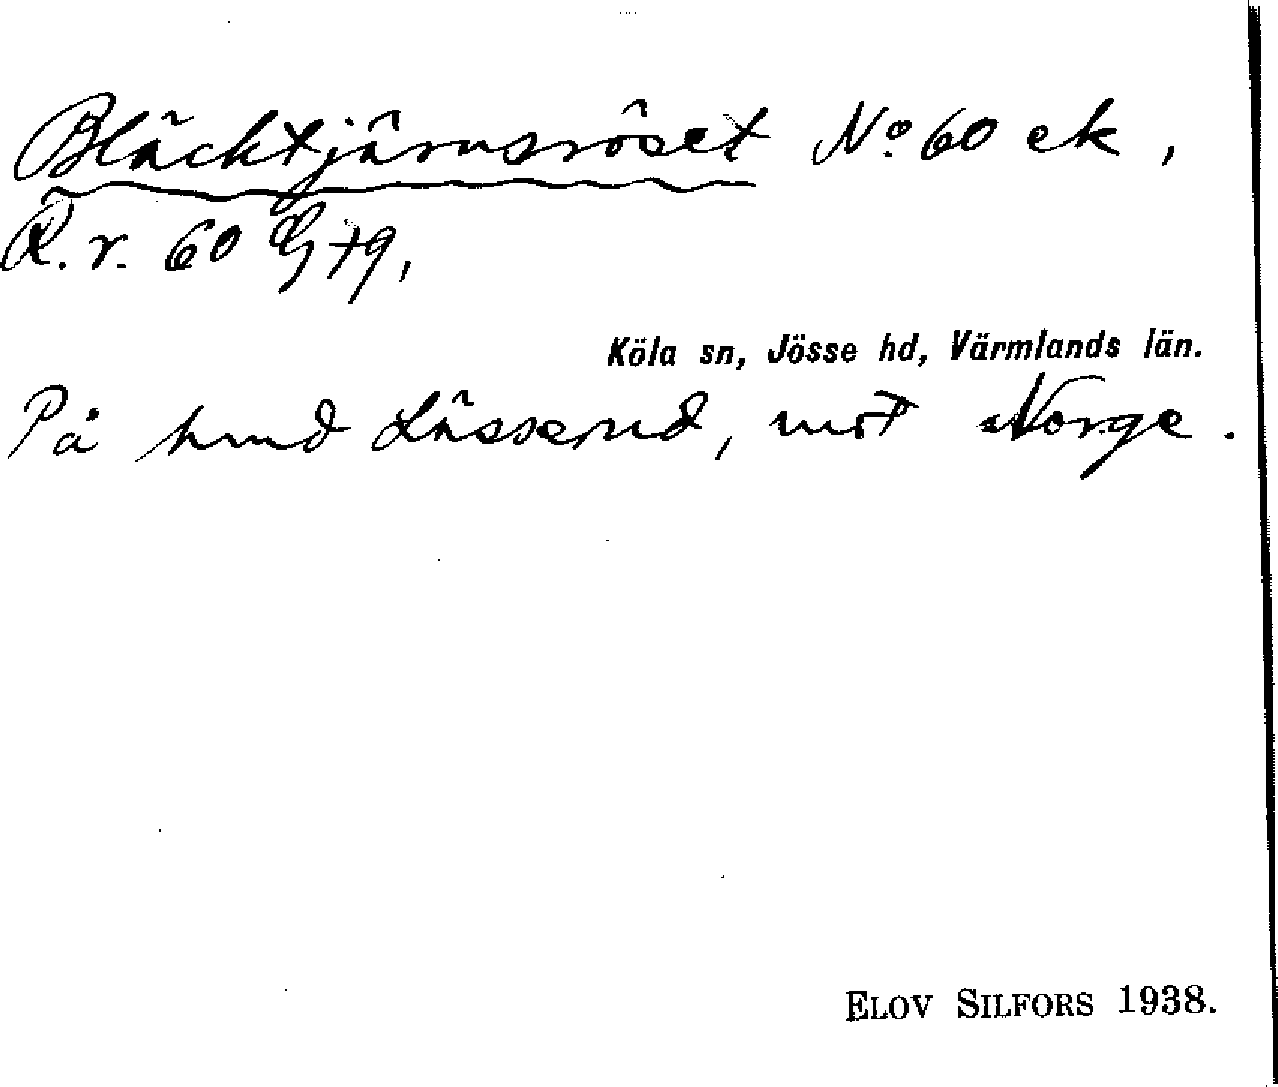 Bläcktjärnsröset No 60 ek,
R. r. 60 G+9,
Köla sn, Jösse hd, Värmlands län.
På hmd Lässerud, mot Norge.
ELOV SILFORS 1938.